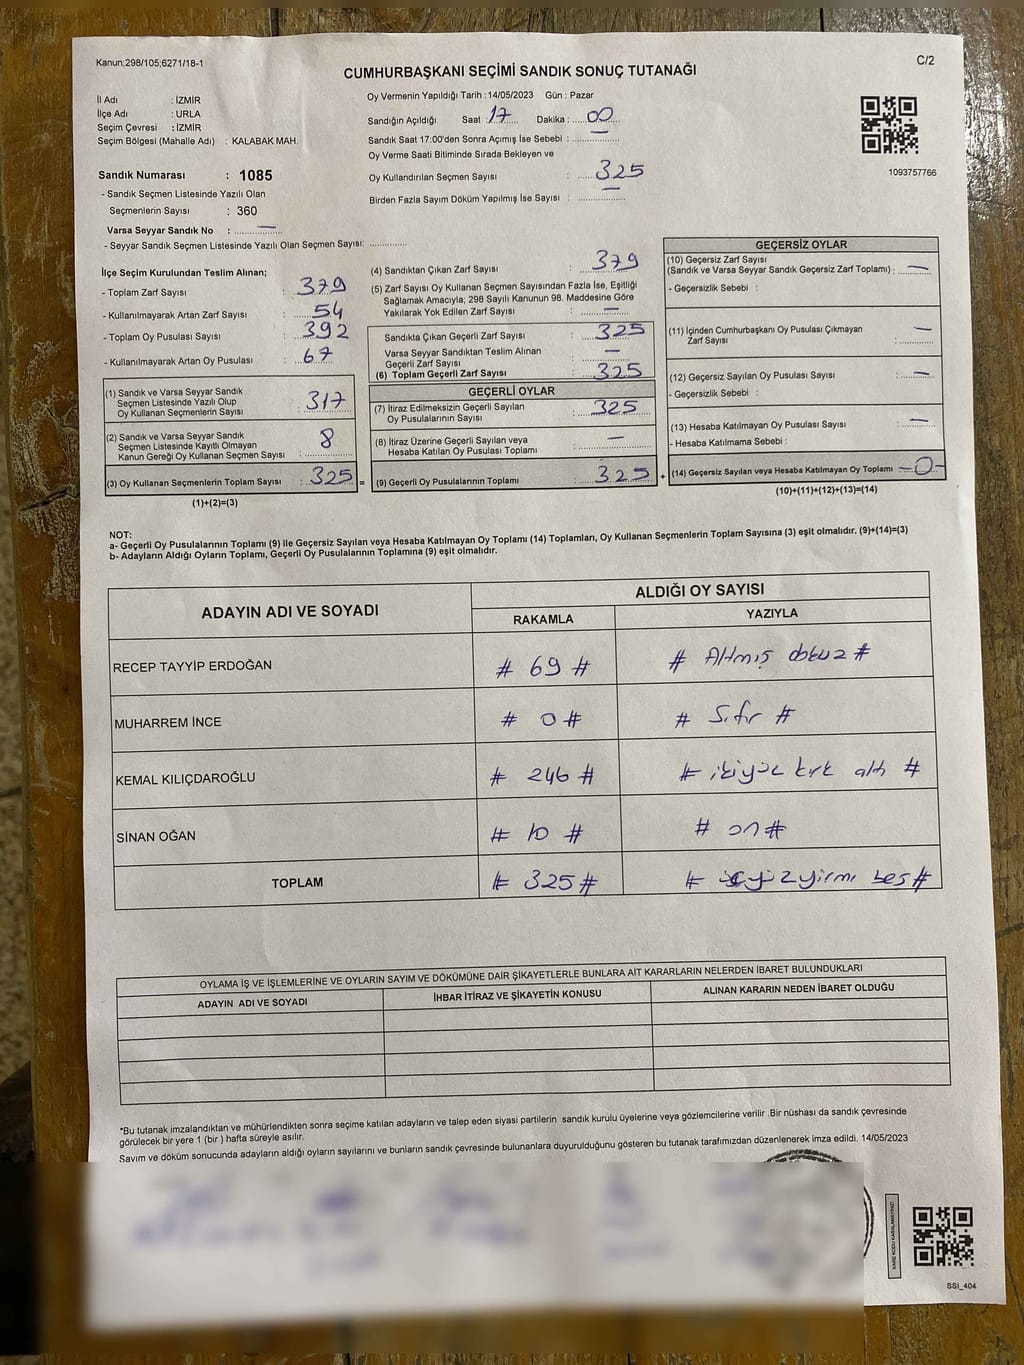 Kanun;298/105;6271/18-1
C/2
CUMHURBAŞKANI SEÇİMİ SANDIK SONUÇ TUTANAĞI
İl Adı : İZMİR
İlçe Adı : URLA
Seçim Çevresi : İZMİR
Seçim Bölgesi (Mahalle Adı) : KALABAK MAH.
Oy Vermenin Yapıldığı Tarih :14/05/2023 Gün : Pazar
Sandığın Açıldığı Saat : 17 Dakika : 00
Sandık Saat 17:00'den Sonra Açımış İse Sebebi : —
Oy Verme Saati Bitiminde Sırada Bekleyen ve
Oy Kullandırılan Seçmen Sayısı : 325
Birden Fazla Sayım Döküm Yapılmış İse Sayısı : —
1093757766
Sandık Numarası : 1085
- Sandık Seçmen Listesinde Yazılı Olan
Seçmenlerin Sayısı : 360
Varsa Seyyar Sandık No : —
- Seyyar Sandık Seçmen Listesinde Yazılı Olan Seçmen Sayısı:
İlçe Seçim Kurulundan Teslim Alınan;
- Toplam Zarf Sayısı : 379
- Kullanılmayarak Artan Zarf Sayısı : 54
- Toplam Oy Pusulası Sayısı : 392
- Kullanılmayarak Artan Oy Pusulası : 67
(1) Sandık ve Varsa Seyyar Sandık
Seçmen Listesinde Yazılı Olup
Oy Kullanan Seçmenlerin Sayısı : 317
(2) Sandık ve Varsa Seyyar Sandık
Seçmen Listesinde Kayıtlı Olmayan
Kanun Gereği Oy Kullanan Seçmen Sayısı : 8
(3) Oy Kullanan Seçmenlerin Toplam Sayısı : 325 =
(1)+(2)=(3)
(4) Sandıktan Çıkan Zarf Sayısı : 379
(5) Zarf Sayısı Oy Kullanan Seçmen Sayısından Fazla İse, Eşitliği
Sağlamak Amacıyla; 298 Sayılı Kanunun 98. Maddesine Göre
Yakılarak Yok Edilen Zarf Sayısı : —
Sandıkta Çıkan Geçerli Zarf Sayısı : 325
Varsa Seyyar Sandıktan Teslim Alınan
Geçerli Zarf Sayısı : —
(6) Toplam Geçerli Zarf Sayısı : 325
GEÇERLİ OYLAR
(7) İtiraz Edilmeksizin Geçerli Sayılan
Oy Pusulalarının Sayısı : 325
(8) İtiraz Üzerine Geçerli Sayılan veya
Hesaba Katılan Oy Pusulası Toplamı : —
(9) Geçerli Oy Pusulalarının Toplamı : 325 +
GEÇERSİZ OYLAR
(10) Geçersiz Zarf Sayısı
(Sandık ve Varsa Seyyar Sandık Geçersiz Zarf Toplamı) : —
- Geçersizlik Sebebi :
(11) İçinden Cumhurbaşkanı Oy Pusulası Çıkmayan
Zarf Sayısı : —
(12) Geçersiz Sayılan Oy Pusulası Sayısı : —
- Geçersizlik Sebebi :
(13) Hesaba Katılmayan Oy Pusulası Sayısı : —
- Hesaba Katılmama Sebebi :
(14) Geçersiz Sayılan veya Hesaba Katılmayan Oy Toplamı : —0—
(10)+(11)+(12)+(13)=(14)
NOT:
a- Geçerli Oy Pusulalarının Toplamı (9) ile Geçersiz Sayılan veya Hesaba Katılmayan Oy Toplamı (14) Toplamları, Oy Kullanan Seçmenlerin Toplam Sayısına (3) eşit olmalıdır. (9)+(14)=(3)
b- Adayların Aldığı Oyların Toplamı, Geçerli Oy Pusulalarının Toplamına (9) eşit olmalıdır.
ADAYIN ADI VE SOYADI
ALDIĞI OY SAYISI
RAKAMLA YAZIYLA
RECEP TAYYİP ERDOĞAN # 69 # # Altmış dokuz #
MUHARREM İNCE # 0 # # Sıfır #
KEMAL KILIÇDAROĞLU # 246 # # ikiyüz kırk altı #
SİNAN OĞAN # 10 # # on #
TOPLAM # 325 # # üçyüzyirmi beş #
OYLAMA İŞ VE İŞLEMLERİNE VE OYLARIN SAYIM VE DÖKÜMÜNE DAİR ŞİKAYETLERLE BUNLARA AİT KARARLARIN NELERDEN İBARET BULUNDUKLARI
ADAYIN ADI VE SOYADI İHBAR İTİRAZ VE ŞİKAYETİN KONUSU ALINAN KARARIN NEDEN İBARET OLDUĞU
*Bu tutanak imzalandıktan ve mühürlendikten sonra seçime katılan adayların ve talep eden siyasi partilerin sandık kurulu üyelerine veya gözlemcilerine verilir .Bir nüshası da sandık çevresinde
görülecek bir yere 1 (bir ) hafta süreyle asılır.
Sayım ve döküm sonucunda adayların aldığı oyların sayılarını ve bunların sandık çevresinde bulunanlara duyurulduğunu gösteren bu tutanak tarafımızdan düzenlenerek imza edildi. 14/05/2023
KARE KODU KARALAMAYINIZ!
SSI_404